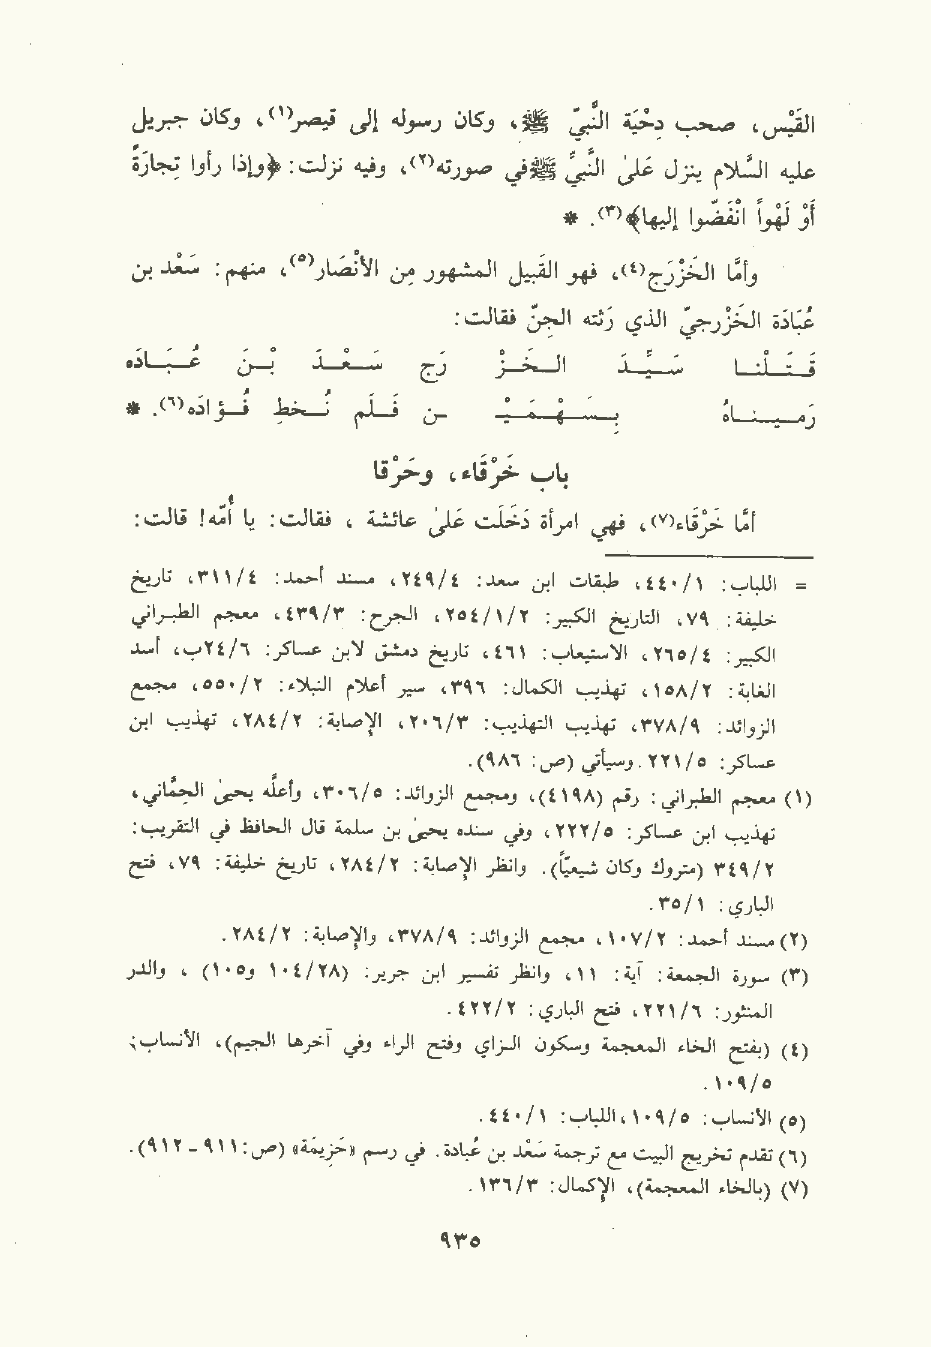 القَيْس، صحب دِحيَة النَّبيّ ﷺ، وكان رسوله إلى قيصر(١)، وكان جبريل
عليه السَّلام ينزل عَلىٰ النَّبيِّ ﷺفي صورته(٢)، وفيه نزلت: ﴿وإذا رأوا تِجَارَةً
أَوْ لَهْواً انْفَضُّوا إليها﴾(٣). *
وأمَّا الخَزْرَج(٤)، فهو القَبيل المشهور مِن الأنْصَار(٥)، منهم: سَعْد بن
عُبَادَة الخَزْرجيّ الذي رَثته الجِنّ فقالت:
قَـتَـلْـنـا سَـيِّـدَ الـخَـزْ رَج سَـعْـدَ بْـنَ عُـبَـادَه
رَمـيـنـاهُ بِـسَـهْـمَـيْـ ـن فَـلَـم نُـخطِ فُـؤادَه(٦). *
باب خَرْقَاء، وحَرْقا
أمَّا خَرْقَاء(٧)، فهي امرأة دَخَلَت عَلىٰ عائشة ، فقالت: يا أُمَّه! قالت:
= اللباب: ٤٤٠/١، طبقات ابن سعد: ٢٤٩/٤، مسند أحمد: ٣١١/٤، تاريخ
خليفة: ٧٩، التاريخ الكبير: ٢٥٤/١/٢، الجرح: ٤٣٩/٣، معجم الطبراني
الكبير: ٢٦٥/٤، الاستيعاب: ٤٦١، تاريخ دمشق لابن عساكر: ٢٤/٦ب، أسد
الغابة: ١٥٨/٢، تهذيب الكمال: ٣٩٦، سير أعلام النبلاء: ٥٥٠/٢، مجمع
الزوائد: ٣٧٨/٩، تهذيب التهذيب: ٢٠٦/٣، الإصابة: ٢٨٤/٢، تهذيب ابن
عساكر: ٢٢١/٥. وسيأتي (ص: ٩٨٦).
(١) معجم الطبراني: رقم (٤١٩٨)، ومجمع الزوائد: ٣٠٦/٥، وأعله يحيىٰ الحِمَّاني،
تهذيب ابن عساكر: ٢٢٢/٥، وفي سنده يحيىٰ بن سلمة قال الحافظ في التقريب:
٣٤٩/٢ (متروك وكان شيعيّاً). وانظر الإصابة: ٢٨٤/٢، تاريخ خليفة: ٧٩، فتح
الباري: ٣٥/١.
(٢) مسند أحمد: ١٠٧/٢، مجمع الزوائد: ٣٧٨/٩، والإصابة: ٢٨٤/٢.
(٣) سورة الجمعة: آية: ١١، وانظر تفسير ابن جرير: (١٠٤/٢٨ و١٠٥) ، والدر
المنثور: ٢٢١/٦، فتح الباري: ٤٢٢/٢.
(٤) (بفتح الخاء المعجمة وسكون الزاي وفتح الراء وفي آخرها الجيم)، الأنساب:
١٠٩/٥.
(٥) الأنساب: ١٠٩/٥، اللباب: ٤٤٠/١.
(٦) تقدم تخريج البيت مع ترجمة سَعْد بن عُبادة. في رسم «خَزيمَة» (ص:٩١١ - ٩١٢).
(٧) (بالخاء المعجمة)، الإكمال: ١٣٦/٣.
٩٣٥